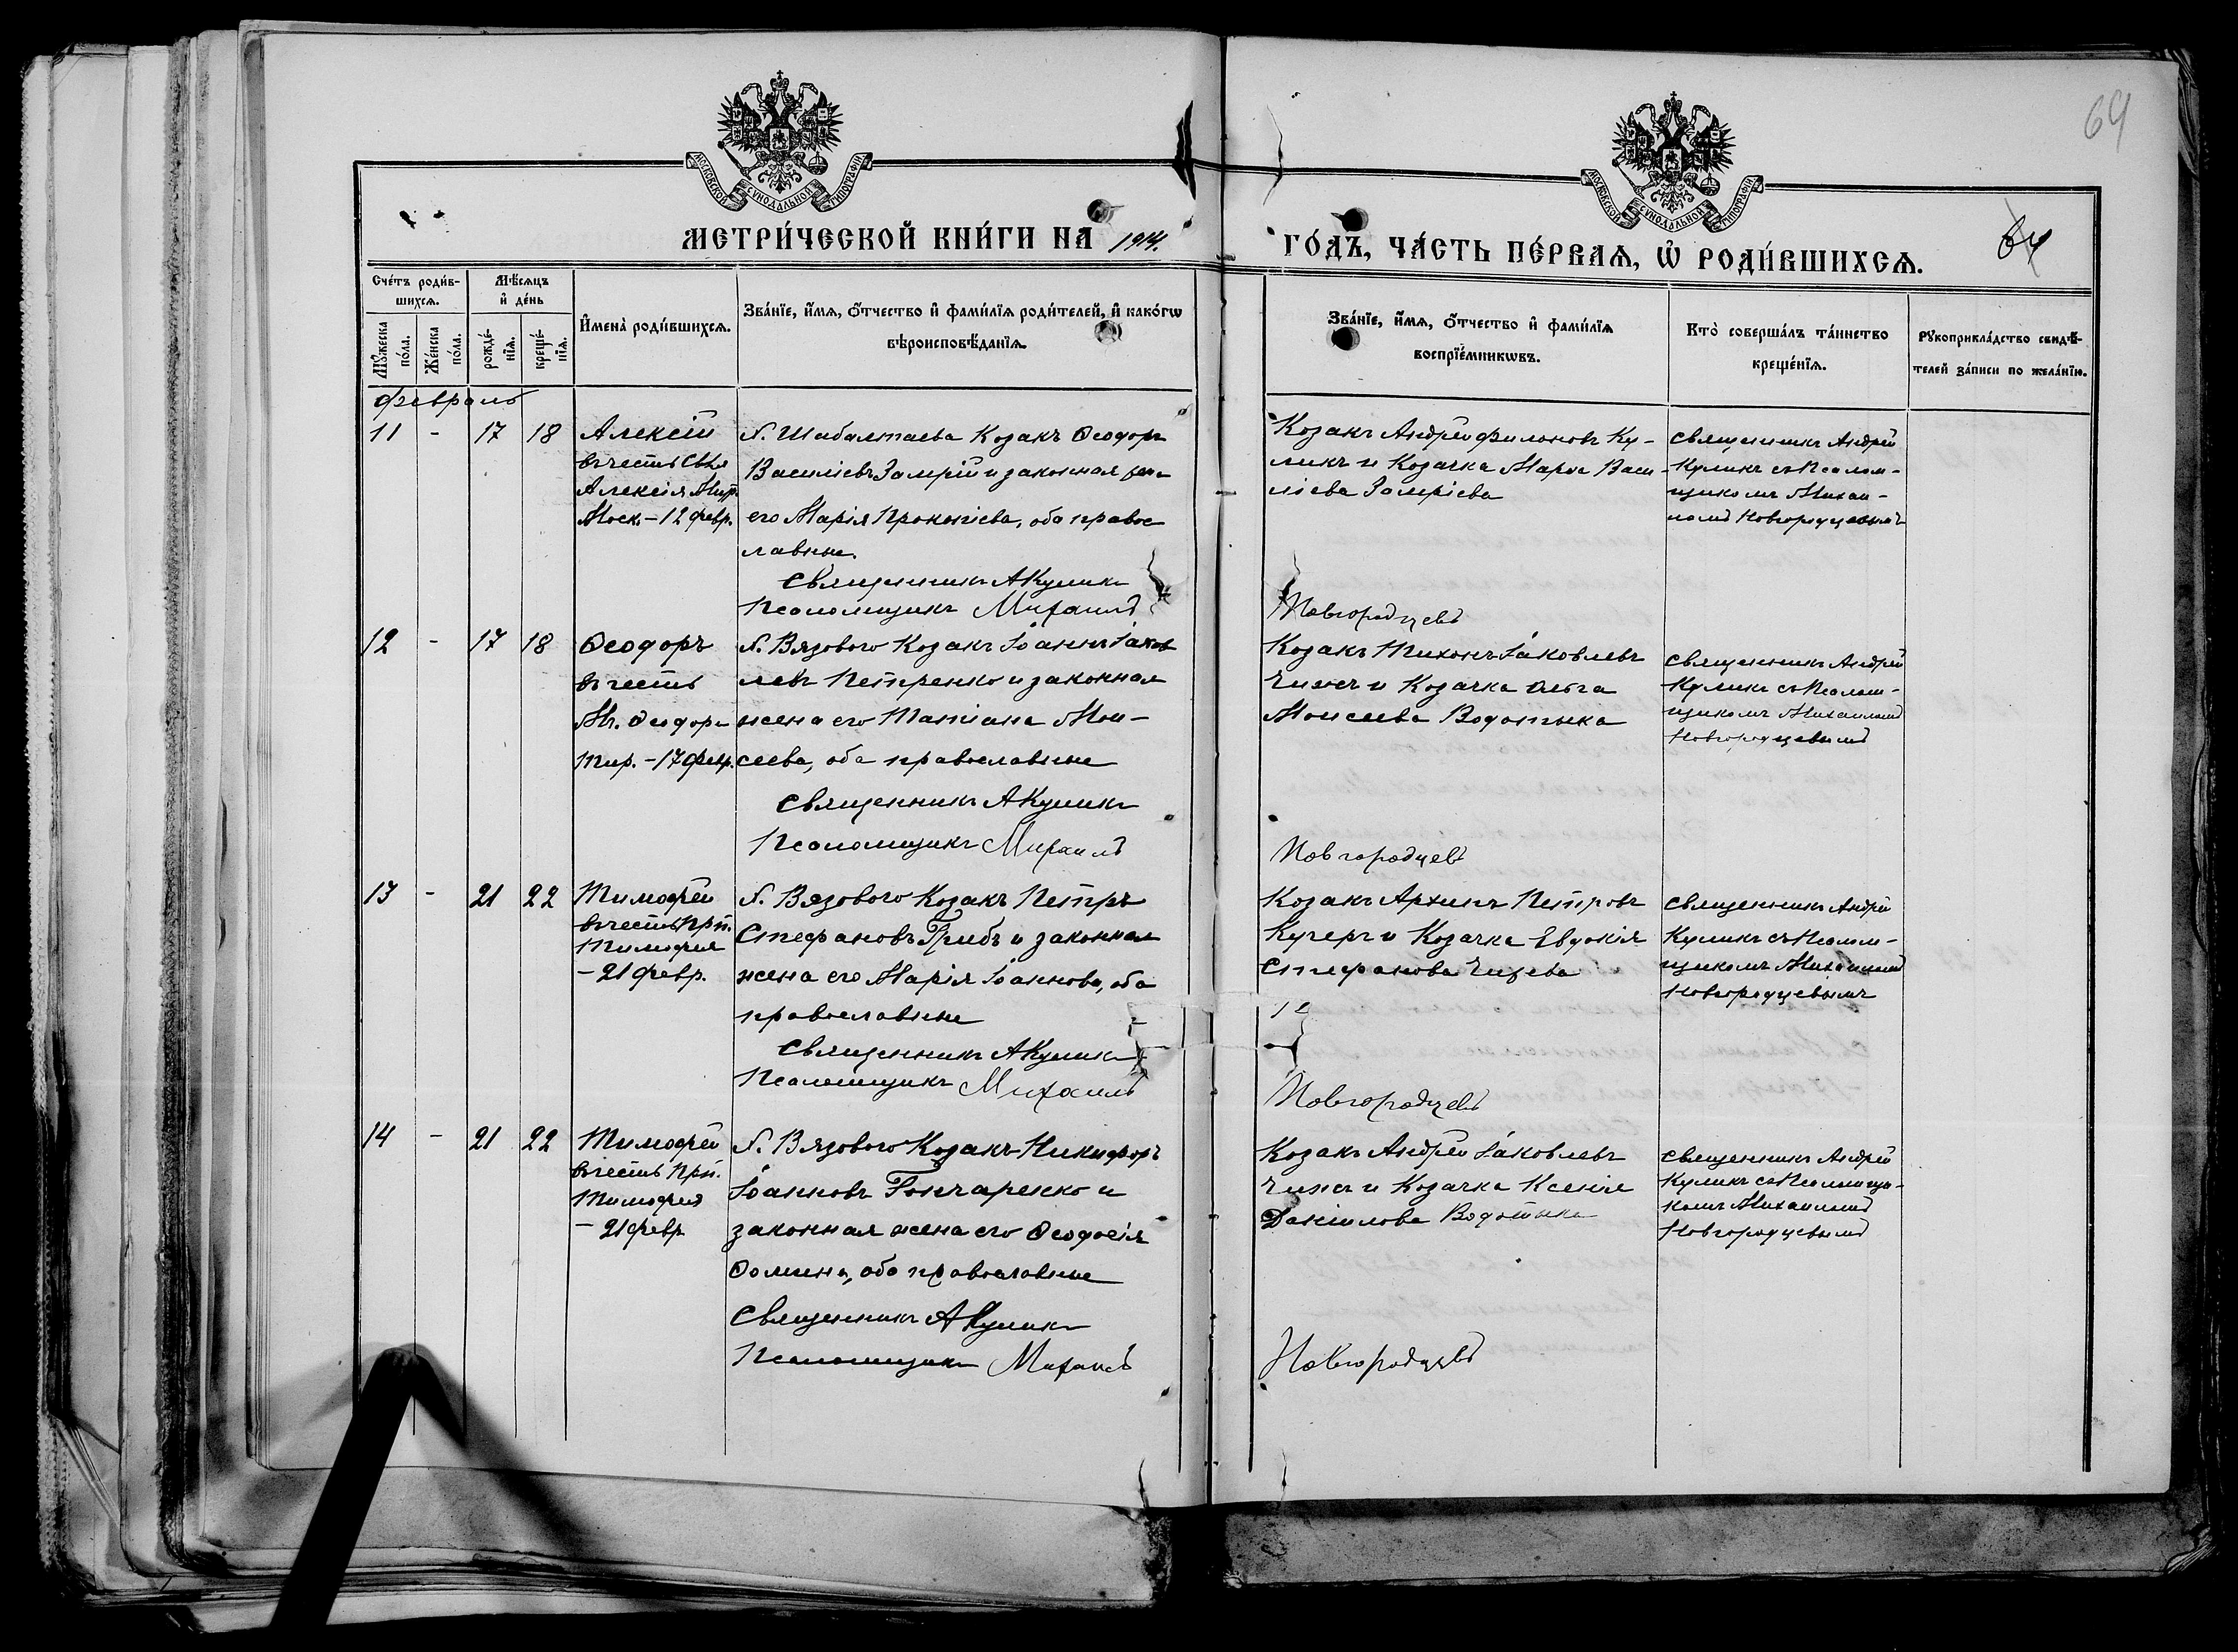 64
МОСКОВСКОЙ СѴНОДАЛЬНОЙ ТИПОГРАФІИ
МОСКОВСКОЙ СѴНОДАЛЬНОЙ ТИПОГРАФІИ
МЕТРИ́ЧЕСКОЙ КНИ́ГИ НА 1914.
ГО́ДЪ, ЧА́СТЬ ПЕ́РВАѦ, Ѡ҆ РОДИ́ВШИХСѦ.
64
Сче́тъ роди́в-
шихсѧ.
Мѣ́сѧцъ
и҆ де́нь
Мꙋ́жеска
по́ла.
Же́нска
по́ла.
рожде́-
нїѧ.
креще́-
нїѧ.
И҆мена̀ роди́вшихсѧ.
Зва́нїе, и҆́мѧ, ѻ҆́тчество и҆ фами́лїѧ роди́телей, и҆ како́гѡ
вѣроисповѣ́данїѧ.
Зва́нїе, и҆́мѧ, ѻ҆́тчество и҆ фами́лїѧ
воспрїе́мникѡвъ.
Кто̀ соверша́лъ та́инство
креще́нїѧ.
Рꙋкоприкла́дство свидѣ́-
телей за́писи по жела́нїю.
Февраль
11 - 17 18
Алексій
въ честь Свят
Алексія Митр.
Моск. - 12 февр.
х. Шабалтаева Козакъ Ѳеодоръ
Василіевъ Замрій и законная жена
его Марія Прокопіева, оба право
славные.
Священникъ А Куликъ
Псаломщикъ Михаилъ
Козакъ Андрей Филоновъ Ку-
ликъ и Козачка Марѳа Васи-
ліева Замріева
Новгородцевъ
Священникъ Андрей
Куликъ съ Псалом-
щикомъ Михаи-
ломъ Новгородцевымъ
12 - 17 18
Ѳеодоръ
въ честь
Мч. Ѳеодора
Тир. - 17 февр.
х. Вязового Козакъ Іоаннъ Іаков
левъ Петренко и законная
жена его Татіана Мои-
сеева, оба православные
Священникъ А Куликъ
Псаломщикъ Михаилъ
Козакъ Тихонъ Іаковлевъ
Чижъ и Козачка Ольга
Моисеева Водотыка
Новгородцевъ
Священникъ Андрей
Куликъ съ Псалом-
щикомъ Михаиломъ
Новгородцевымъ
13 - 21 22
Тимофей
въ честь Прп.
Тимофея
- 21 февр.
х. Вязового Козакъ Петръ
Стефановъ Грибъ и законная
жена его Марія Іоаннова, оба
православные
Священникъ А Куликъ
Псаломщикъ Михаилъ
Козакъ Архипъ Петровъ
Кучеръ и Козачка Евдокія
Стефанова
Новгородцевъ
Священникъ Андрей
Куликъ съ Псалом-
щикомъ Михаиломъ
Новгородцевымъ
14 - 21 22
Тимофей
въ честь Прп.
Тимофея
- 21 февр
х. Вязового Козакъ Никифоръ
Іоанновъ Гончаренко и
законная жена его Ѳеодосія
Ѳомина, оба православные
Священникъ А Куликъ
Псаломщикъ Михаилъ
Козакъ Андрей Іаковлевъ
Чижъ и Козачка Ксенія
Даніилова Водотыка
Новгородцевъ
Священникъ Андрей
Куликъ съ Псаломщи-
комъ Михаиломъ
Новгородцевымъ